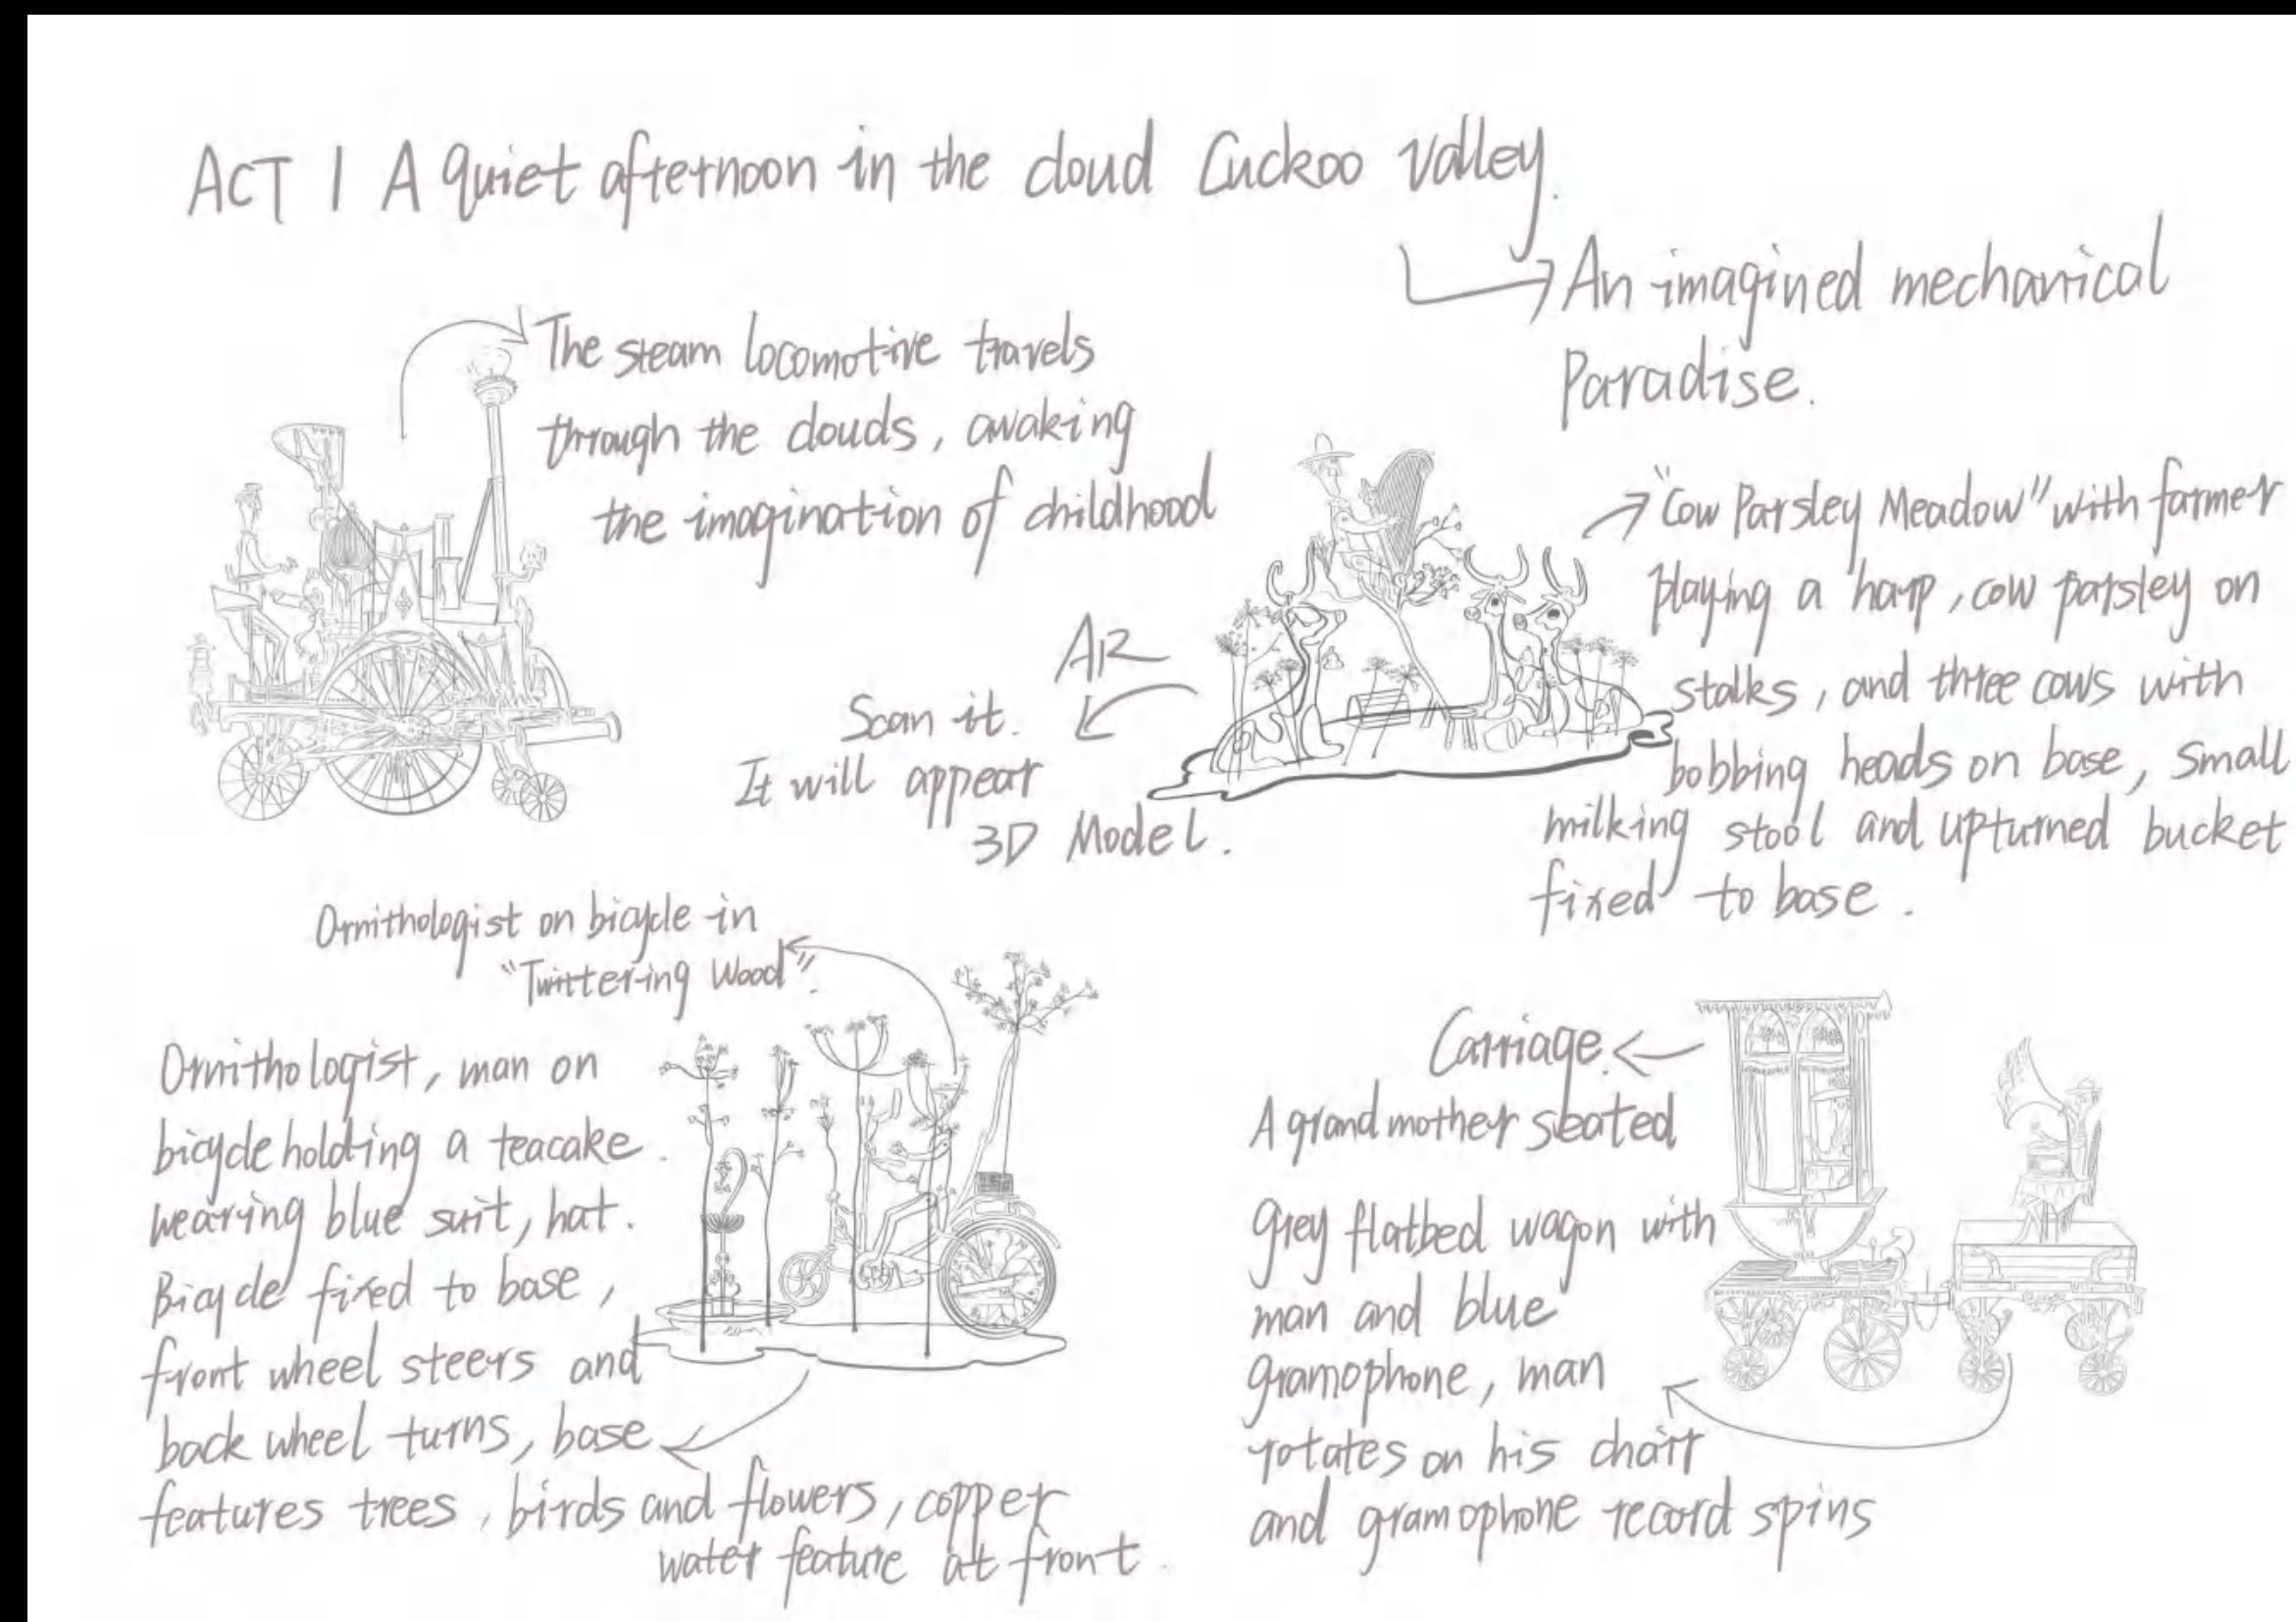 ACT 1 A quiet afternoon in the cloud Cuckoo valley.
An imagined mechanical
Paradise.
The steam locomotive travels
through the clouds, awaking
the imagination of childhood
"Cow Parsley Meadow" with farmer
playing a harp, cow parsley on
stalks, and three cows with
bobbing heads on base, small
milking stool and upturned bucket
fixed to base.
AR
Scan it.
It will appear
3D Model.
Ornithologist on bicycle in
"Twittering Wood".
Ornithologist, man on
bicycle holding a teacake.
wearing blue suit, hat.
Bicycle fixed to base,
front wheel steers and
back wheel turns, base
features trees, birds and flowers, copper
water feature at front.
Carriage.
A grandmother seated
Grey flatbed wagon with
man and blue
gramophone, man
rotates on his chair
and gramophone record spins